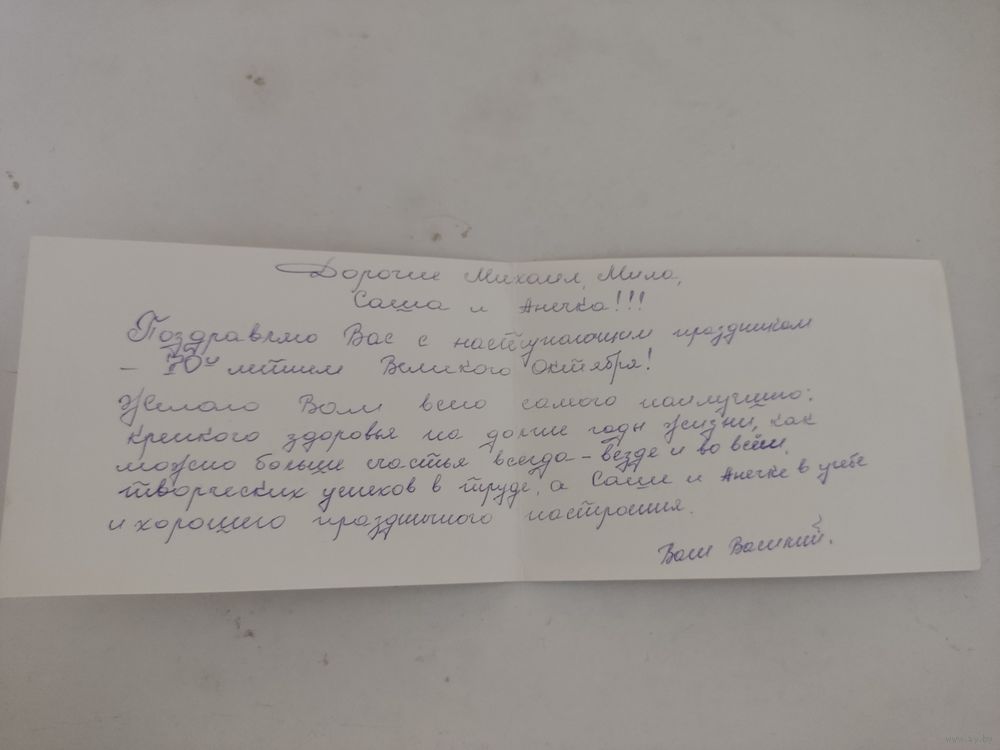 Дорогие Михаил, Мила,
Саша и Анечка!!!
Поздравляю Вас с наступающим праздником
- 70й летием Великого Октября!
Желаю Вам всего самого наилучшего:
крепкого здоровья на долгие годы жизни, как
можно больше счастья всегда - везде и во всем,
творческих успехов в труде, а Саше и Анечке в учебе
и хорошего праздничного настроения.
Ваш Василий.